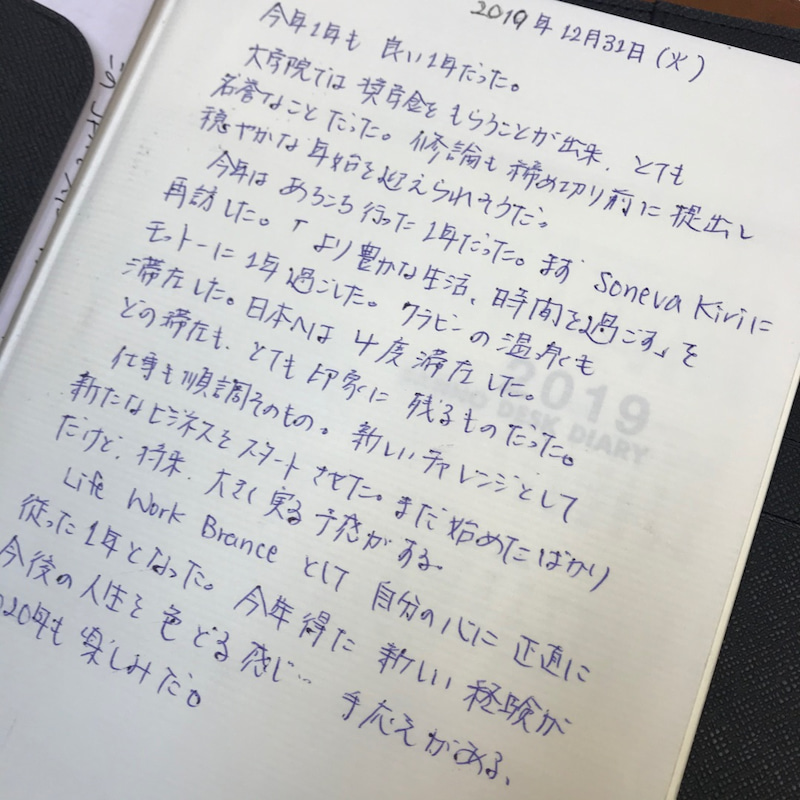 2019年12月31日(火)
今年1年も 良い1年だった。
大学院では 奨学金を もらうことが出来、とても
名誉なことだった。修論も 締め切り前に 提出し
穏やかな 年始を 迎えられそうだ。
今年は あちこち 行った 1年だった。まず Soneva Kiriに
再訪した。「より豊かな生活、時間を過ごす」を
モットーに 1年 過ごした。クラビの 温泉も
滞在した。日本へは 4度 滞在した。
どの滞在も、とても 印象に 残るものだった。
仕事も 順調そのもの。新しい チャレンジとして
新たなビジネスを スタートさせた。まだ 始めたばかり
だけど、将来、大きく 実る 予感がする。
Life Work Brance として 自分の心に 正直に
従った 1年となった。今年 得た 新しい 経験が
今後の 人生を 色どる 感じ… 手応えがある、
2020年も 楽しみだ。
2019
DESK DIARY